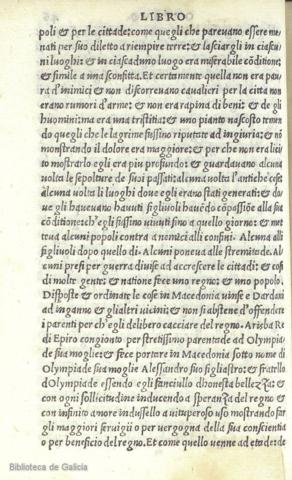 LIBRO
poli & per le cittade: come quegli che pareuano essere me
nati per suo diletto a riempire terre: & lasciargli in ciascu
ni luoghi: & in ciascaduno luogo era miserabile cōditione;
& simile a una sconfitta. Et certamente quella non era pau
ra d'inimici & non discorreuano caualieri per la citta non
erano rumori d'arme: & non era rapina di beni: & de gli
huomini: ma era una tristitia: & uno pianto nascosto temen
do quegli che le lagrime fussino riputate ad ingiuria: & nō
monstrando il dolore era maggiore: & per che non era lici
to mostrarlo egli era piu profundo: & guardauano alcuna
uolta le sepolture de suoi passati: alcuna uolta l'antiche cose:
alcuna uolta li luoghi doue egli erano stati generati: & do
ue gli haueuano hauuti figliuoli hauēdo cōpassiōe alla sua
cōditione: ch'egli fussino uiuuti fino a quello giorno: & met
teua alcuni popoli contra a nemici alli confini. Alcuna alli
figliuoli dopo quello di. Alcuni poneua alle stremitade. Al
cuni presi per guerra diuise ad accrescere le cittadi: & cosi
di molte gente: & natione fece uno regno: & uno popolo.
Disposte & ordinate le cose in Macedonia uinse e Dardani
ad inganno & gli altri uicini: & non si abstene d'offendere
i parenti per ch'egli delibero cacciare del regno. Arisba Re
di Epiro congionto per strettissimo parentado ad Olympia
de sua moglie: & fece portare in Macedonia sotto nome di
Olympiade sua moglie Alessandro suo figliastro: & fratello
d'Olympiade essendo egli fanciullo d'honesta bellezza: &
con ogni sollicitudine inducendo a speranza del regno &
con infinito amore indussello a uituperoso uso mostrando far
gli maggiori seruigii o per uergogna della sua conscientia
o per beneficio del regno. Et come quello uenne ad etade: de
Biblioteca de Galicia